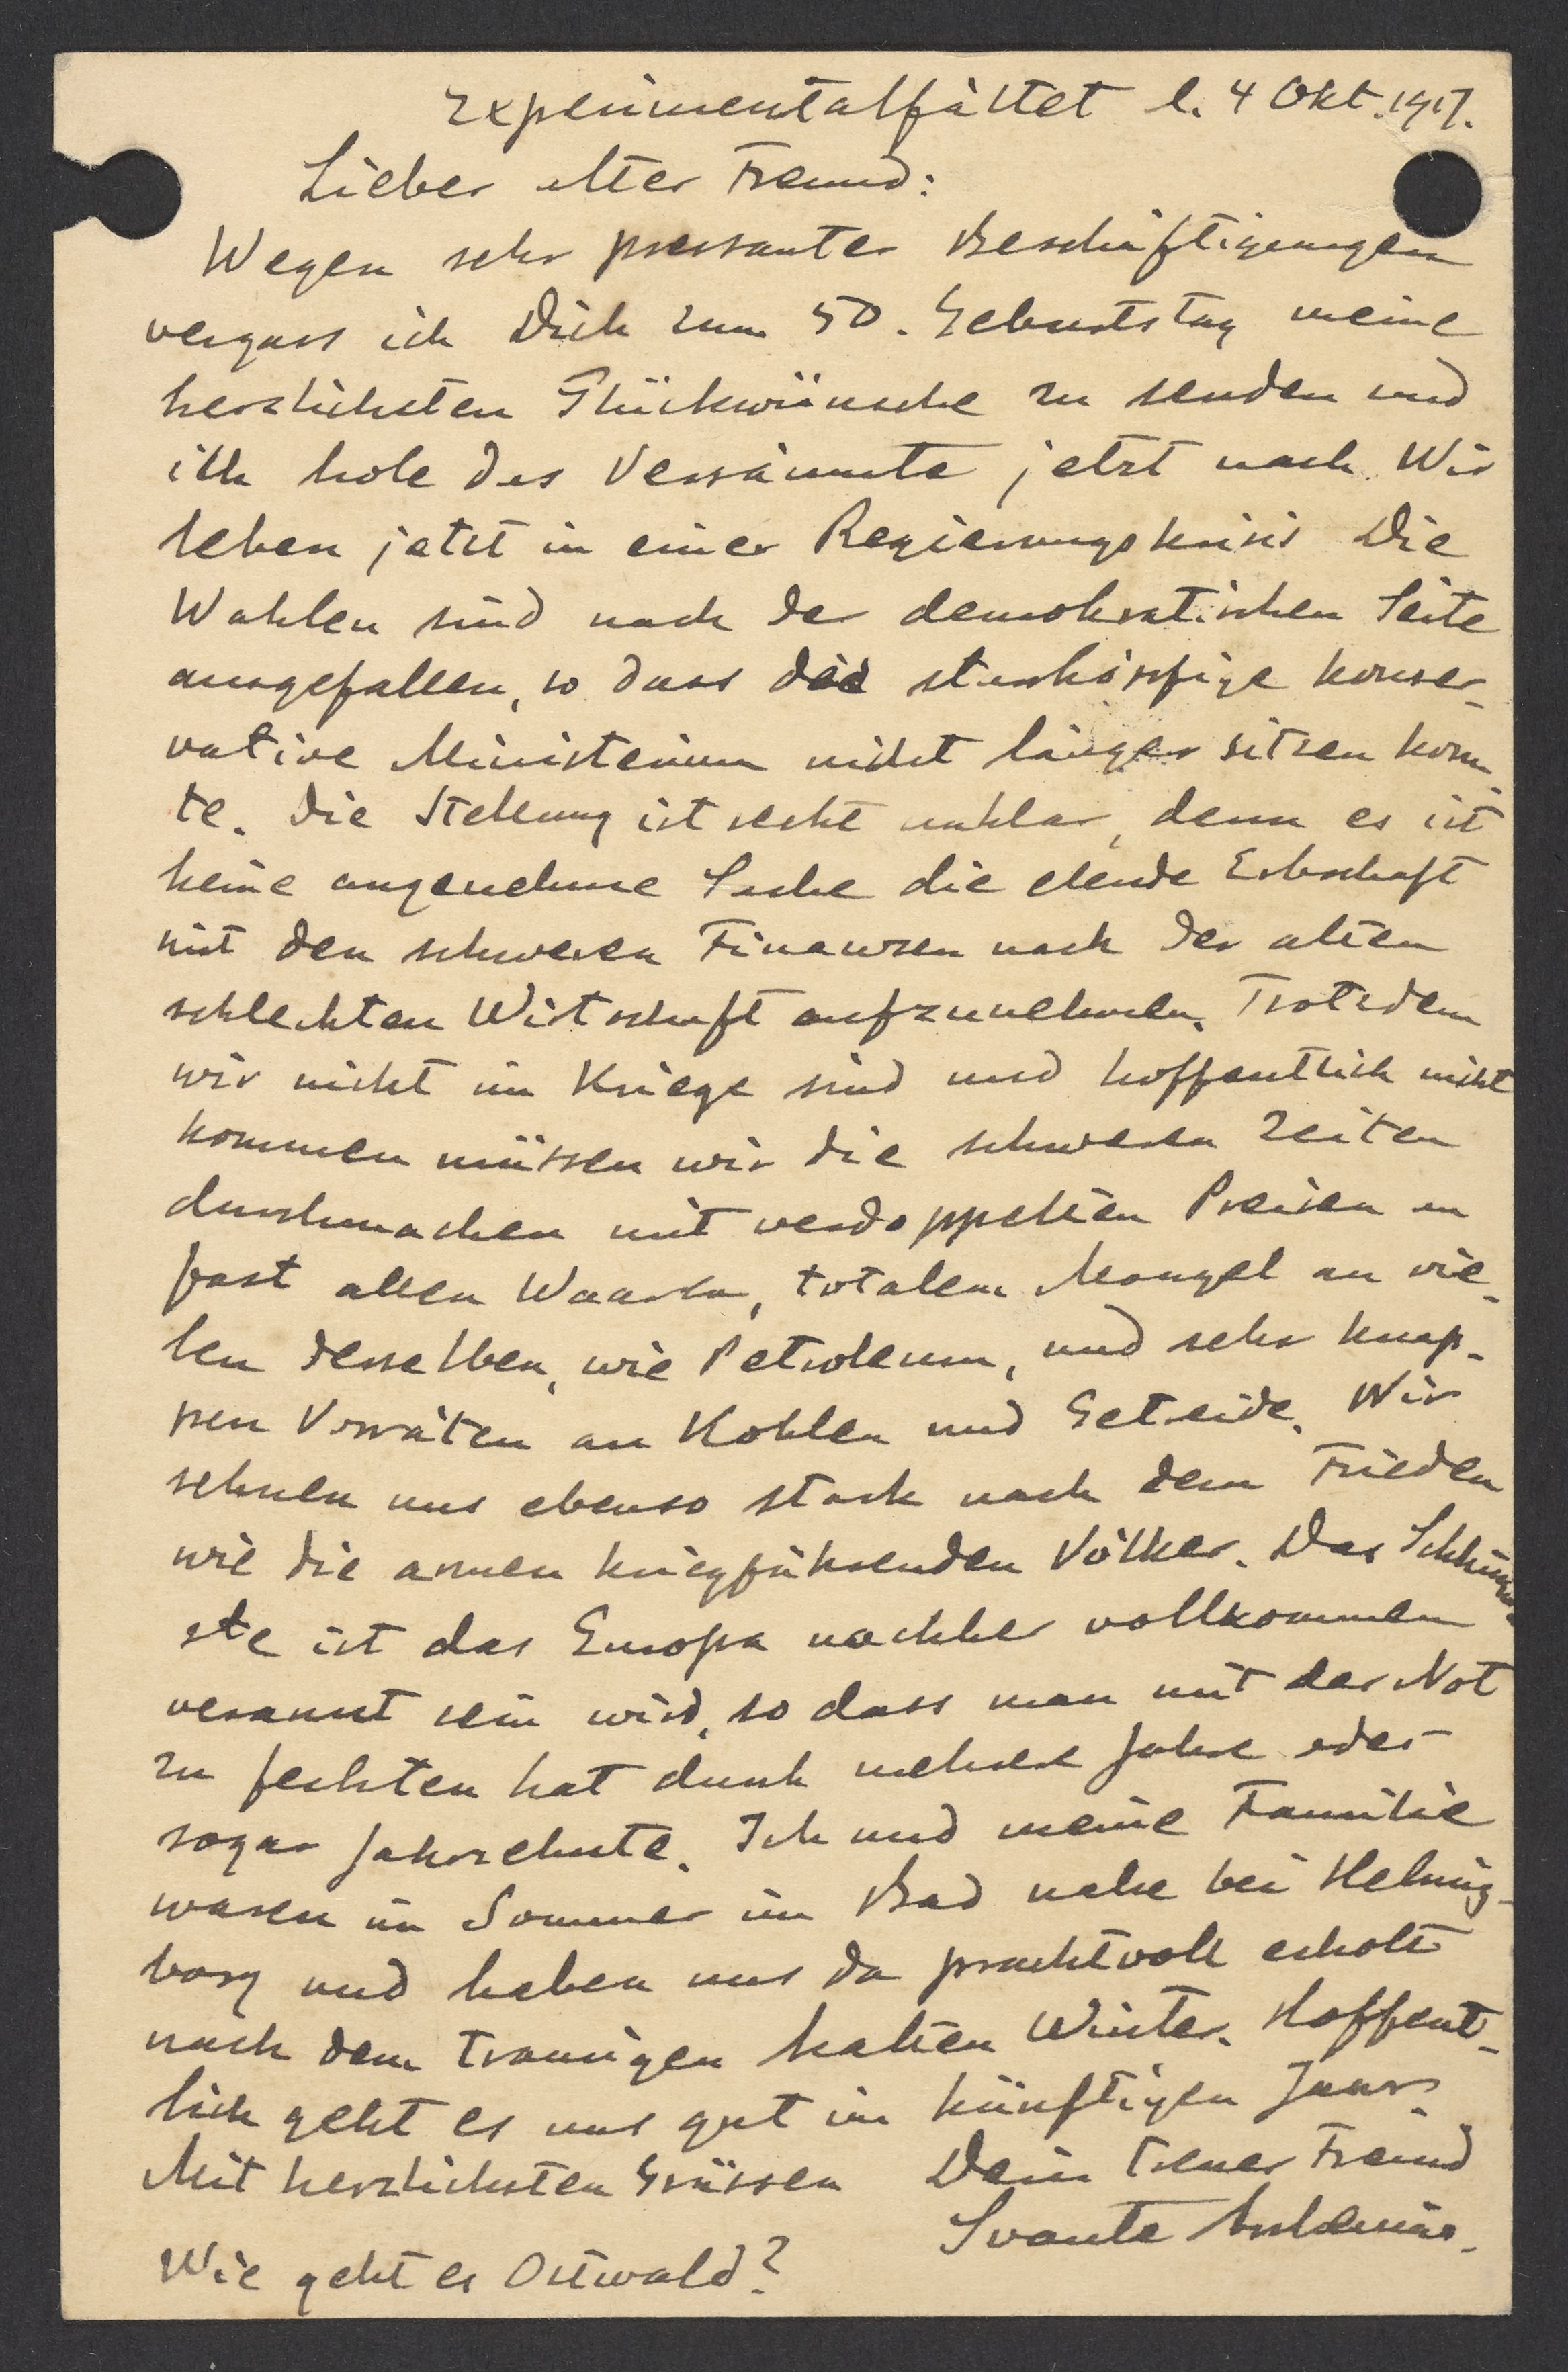 Experimentalfältet d. 4 Okt. 1917.
Lieber alter Freund:
Wegen sehr pressanter Beschäftigungen
vergass ich Dich zum 50. Geburtstag meine
herzlichsten Glückwünsche zu senden und
ich hole das Versäumte jetzt nach. Wir
leben jetzt in einer Regierungskrisis Die
Wahlen sind nach der demokratischen Seite
ausgefallen, so dass das starrköpfige konser-
vative Ministerium nicht länger sitzen konn-
te. Die Stellung ist recht unklar, denn es ist
keine angenehme Sache die elende Erbschaft
mit den schweren Finanzen nach der alten
schlechten Wirtschaft aufzunehmen. Trotzdem
wir nicht im Kriege sind und hoffentlich nicht
kommen müssen wir die schweren Zeiten
durchmachen mit verdoppelten Preisen an
fast allen Waaren, totalem Mangel an vie-
len derselben, wie Petroleum, und sehr knap-
pen Vorräten an Kohlen und Getreide. Wir
sehnen uns ebenso stark nach dem Frieden
wie die armen kriegführenden Völker. Das Schlimm-
ste ist das Europa nachher vollkommen
verarmt sein wird, so dass man mit der Not
zu fechten hat durch mehrere Jahre oder
sogar Jahrzehnte. Ich und meine Familie
waren im Sommer im Bad nahe bei Helsing-
borg und haben uns da prachtvoll erholt
nach dem traurigen kalten Winter. Hoffent-
lich geht es uns gut im künftigen Jaar.
Mit herzlichsten Grüssen Dein treuer Freund
Svante Arrhenius.
Wie geht es Ostwald?